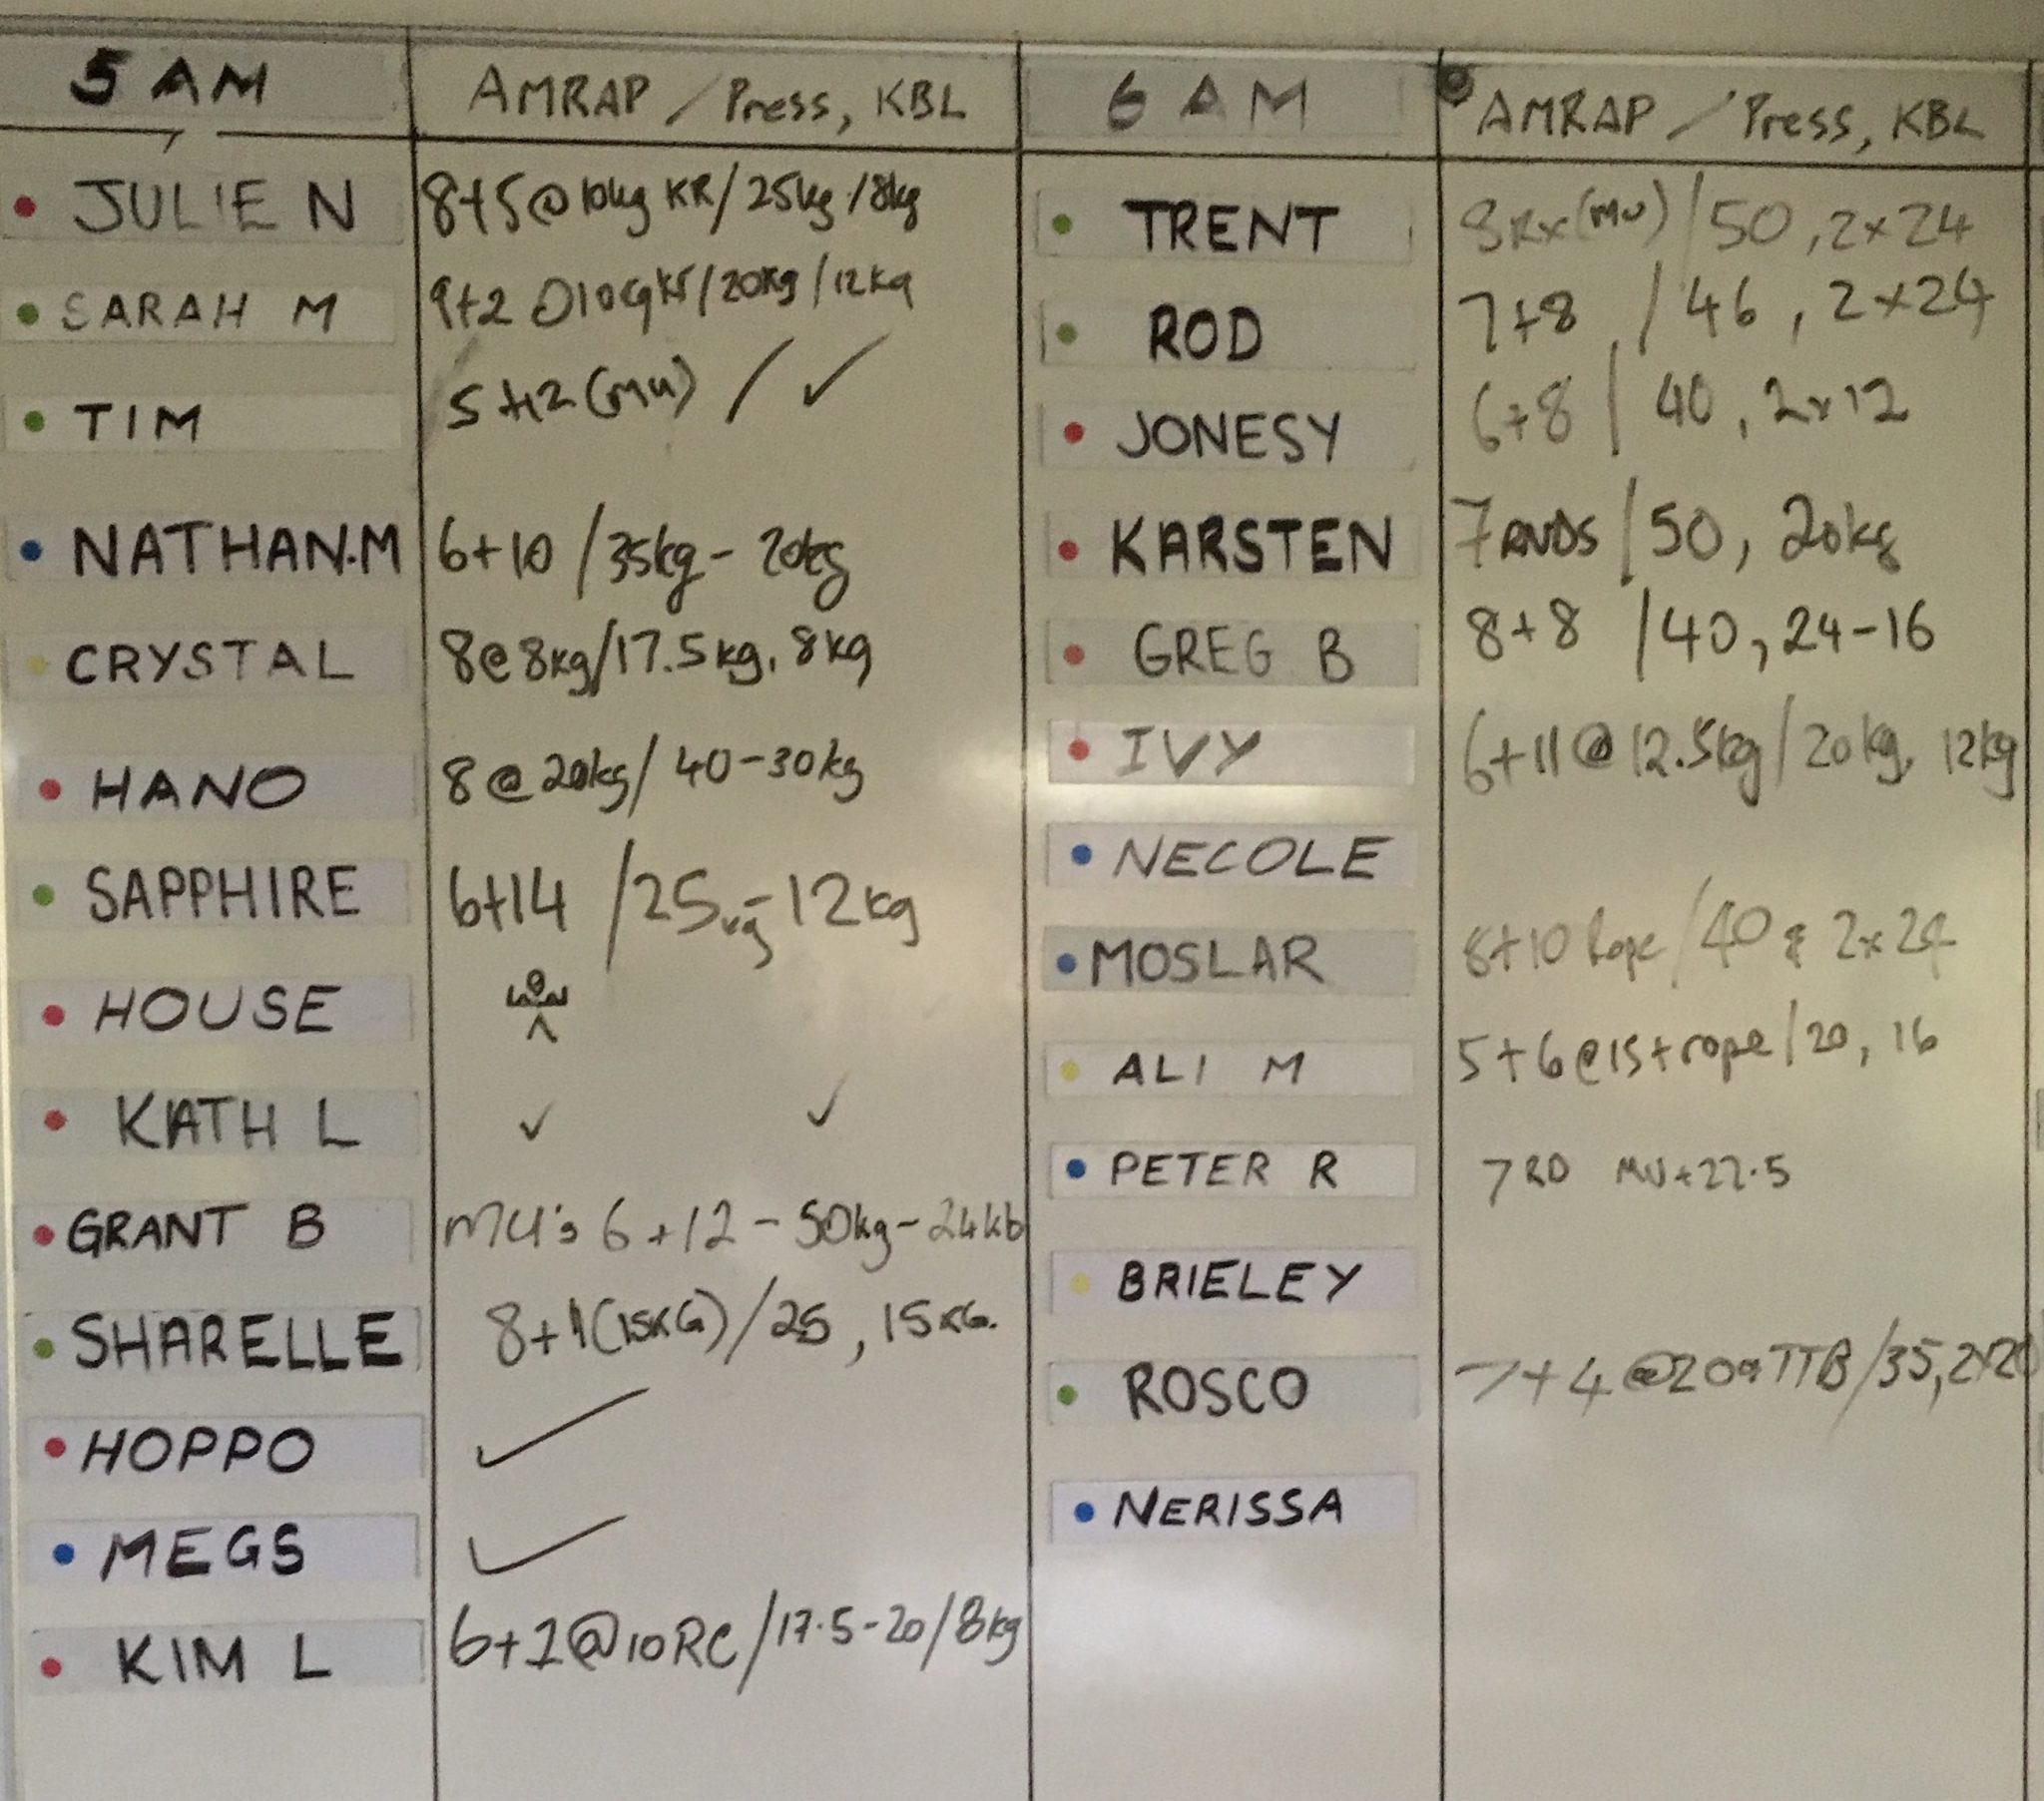 5 AM AMRAP / Press, KBL
JULIE N 8+5@10kg KR/25kg/18kg
SARAH M 9+2 /20kg/12kg
TIM 5+12 (MU) / ✓
NATHAN.M 6+10 /35kg- 20kg
CRYSTAL 8@8kg/17.5kg, 8kg
HANO 8@20kg/ 40-30kg
SAPPHIRE 6+14 /25kg-12kg
HOUSE
KATH L ✓ ✓
GRANT B MU's 6+12 - 50kg-24kb
SHARELLE 8+1(15KG)/25, 15KG.
HOPPO ✓
MEGS ✓
KIM L 6+1@10RC/17.5-20/8kg
6 AM AMRAP / Press, KBL
TRENT 8Rx(MU)/50, 2x24
ROD 7+8 / 46, 2x24
JONESY 6+8 / 40, 2x12
KARSTEN 7RNDS /50, 20kg
GREG B 8+8 /40, 24-16
IVY 6+11@12.5kg/20kg, 12kg
NECOLE
MOSLAR 8+10 Rope/40 & 2x24
ALI M 5+6@15+rope/20, 16
PETER R 7 RD MU+22.5
BRIELEY
ROSCO 7+4 TTB/35,2x20
NERISSA